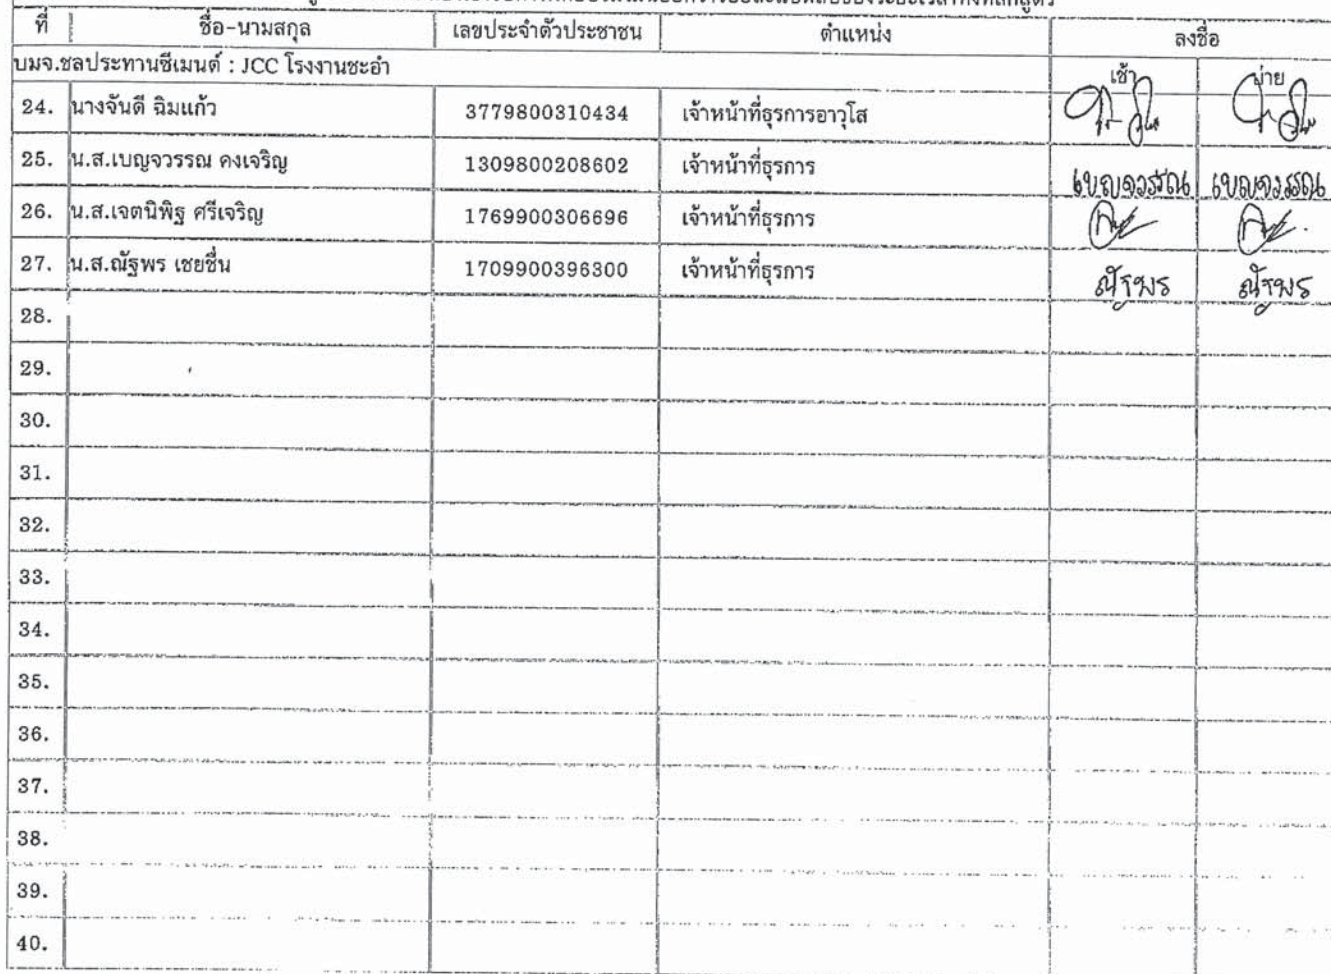 ที่ ชื่อ-นามสกุล เลขประจำตัวประชาชน ตำแหน่ง ลงชื่อ
บมจ.ชลประทานซีเมนต์ : JCC โรงงานชะอำ เช้า บ่าย
24. นางจันดี ฉิมแก้ว 3779800310434 เจ้าหน้าที่ธุรการอาวุโส
25. น.ส.เบญจวรรณ คงเจริญ 1309800208602 เจ้าหน้าที่ธุรการ เบญจวรรณ เบญจวรรณ
26. น.ส.เจตนิพิฐ ศรีเจริญ 1769900306696 เจ้าหน้าที่ธุรการ
27. น.ส.ณัฐพร เชยชื่น 1709900396300 เจ้าหน้าที่ธุรการ ณัฐพร ณัฐพร
28.
29.
30.
31.
32.
33.
34.
35.
36.
37.
38.
39.
40.